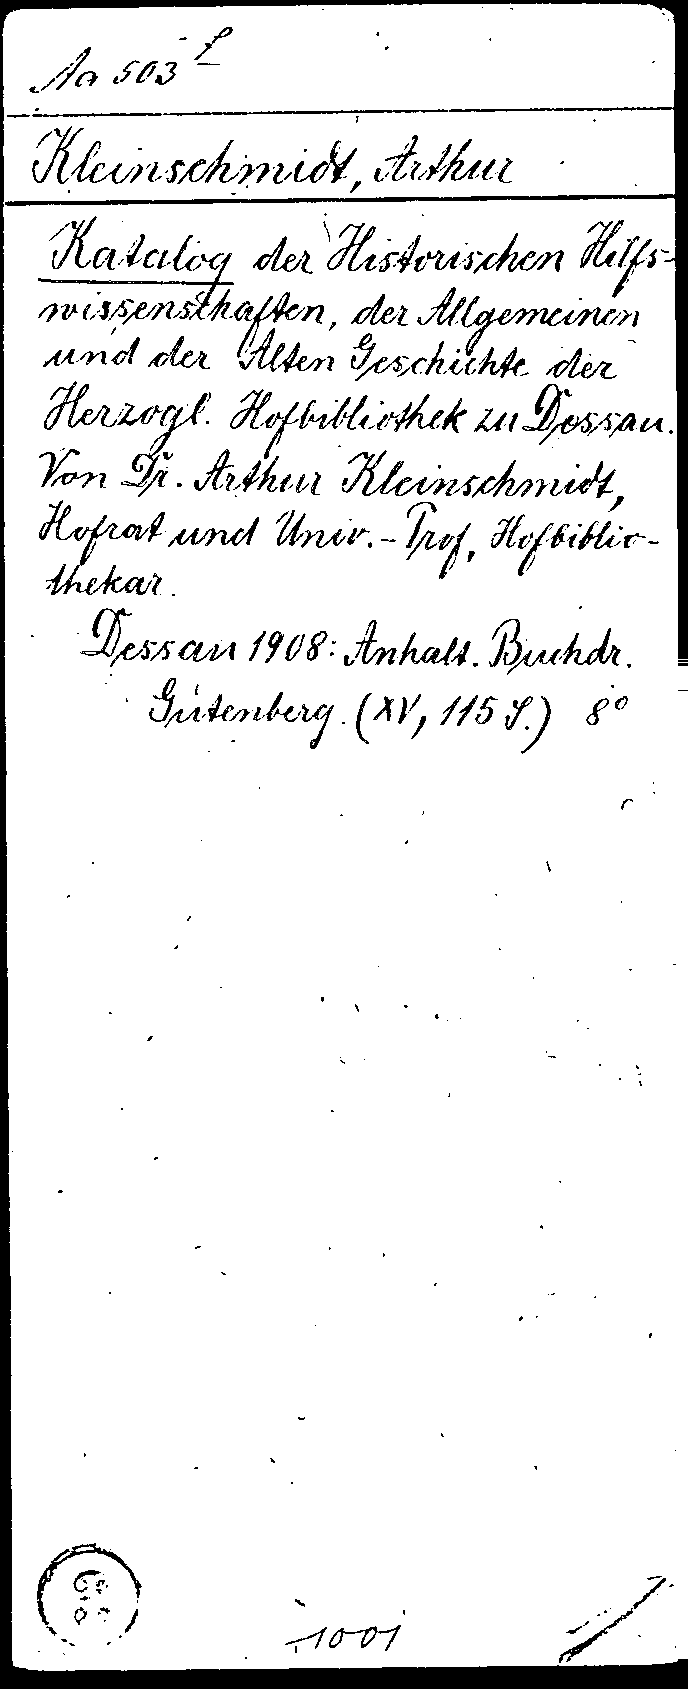 Aa 503 f
Kleinschmidt, Arthur
Katalog der Historischen Hilfs-
wissenschaften, der Allgemeinen
und der Alten Geschichte der
Herzogl. Hofbibliothek zu Dessau.
Von Dr. Arthur Kleinschmidt,
Hofrat und Univ.-Prof, Hofbiblio-
thekar.
Dessau 1908: Anhalt. Buchdr.
Gutenberg. (XV, 115 S.) 8°
1001